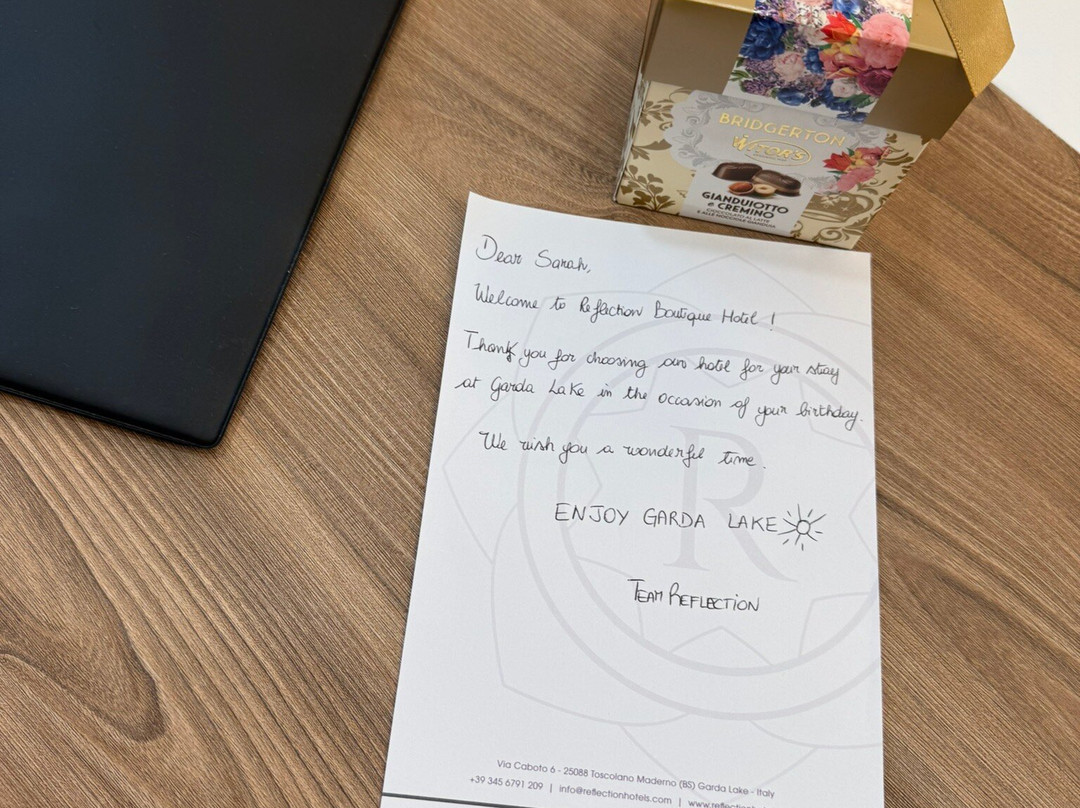 BRIDGERTON
WITOR'S
GIANDUIOTTO
e CREMINO
CIOCCOLATO AL LATTE
E ALLE NOCCIOLE GIANDUIA
Dear Sarah,
Welcome to Reflection Boutique Hotel !
Thank you for choosing our hotel for your stay
at Garda Lake in the occasion of your birthday.
We wish you a wonderful time.
ENJOY GARDA LAKE
R
TEAM REFLECTION
Via Caboto 6 - 25088 Toscolano Maderno (BS) Garda Lake - Italy
+39 345 6791 209 | info@reflectionhotels.com | www.reflectionhotels